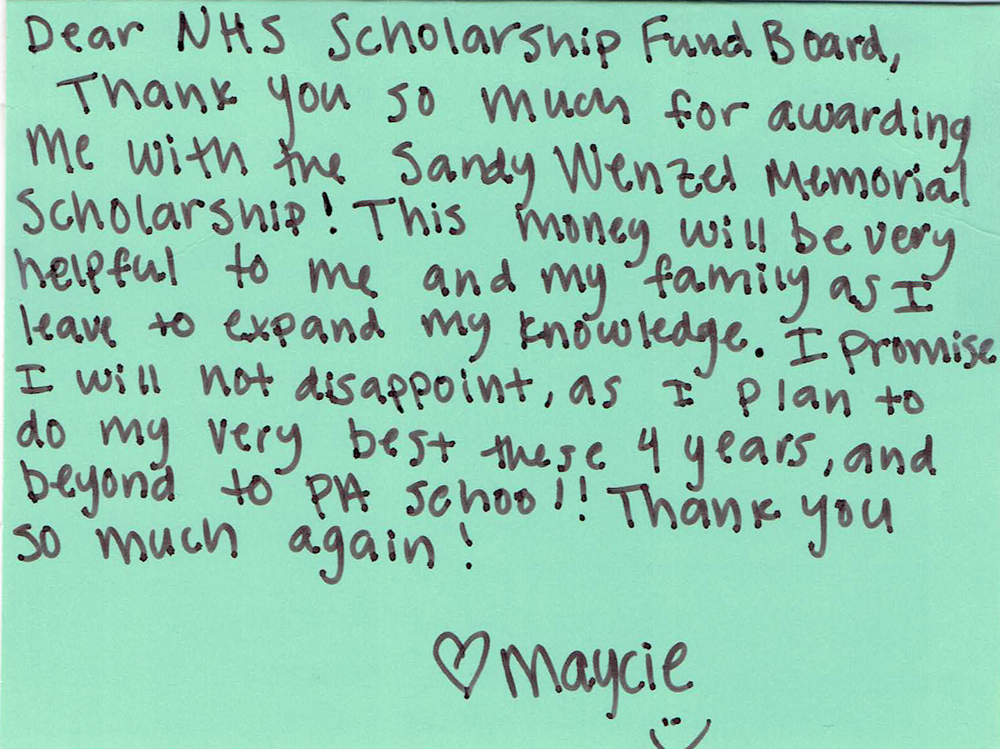 Dear NHS Scholarship Fund Board,
Thank you so much for awarding
me with the Sandy Wenzel Memorial
Scholarship! This money will be very
helpful to me and my family as I
leave to expand my knowledge. I promise
I will not disappoint, as I plan to
do my very best these 4 years, and
beyond to PA school!! Thank you
so much again!
♡ Maycie